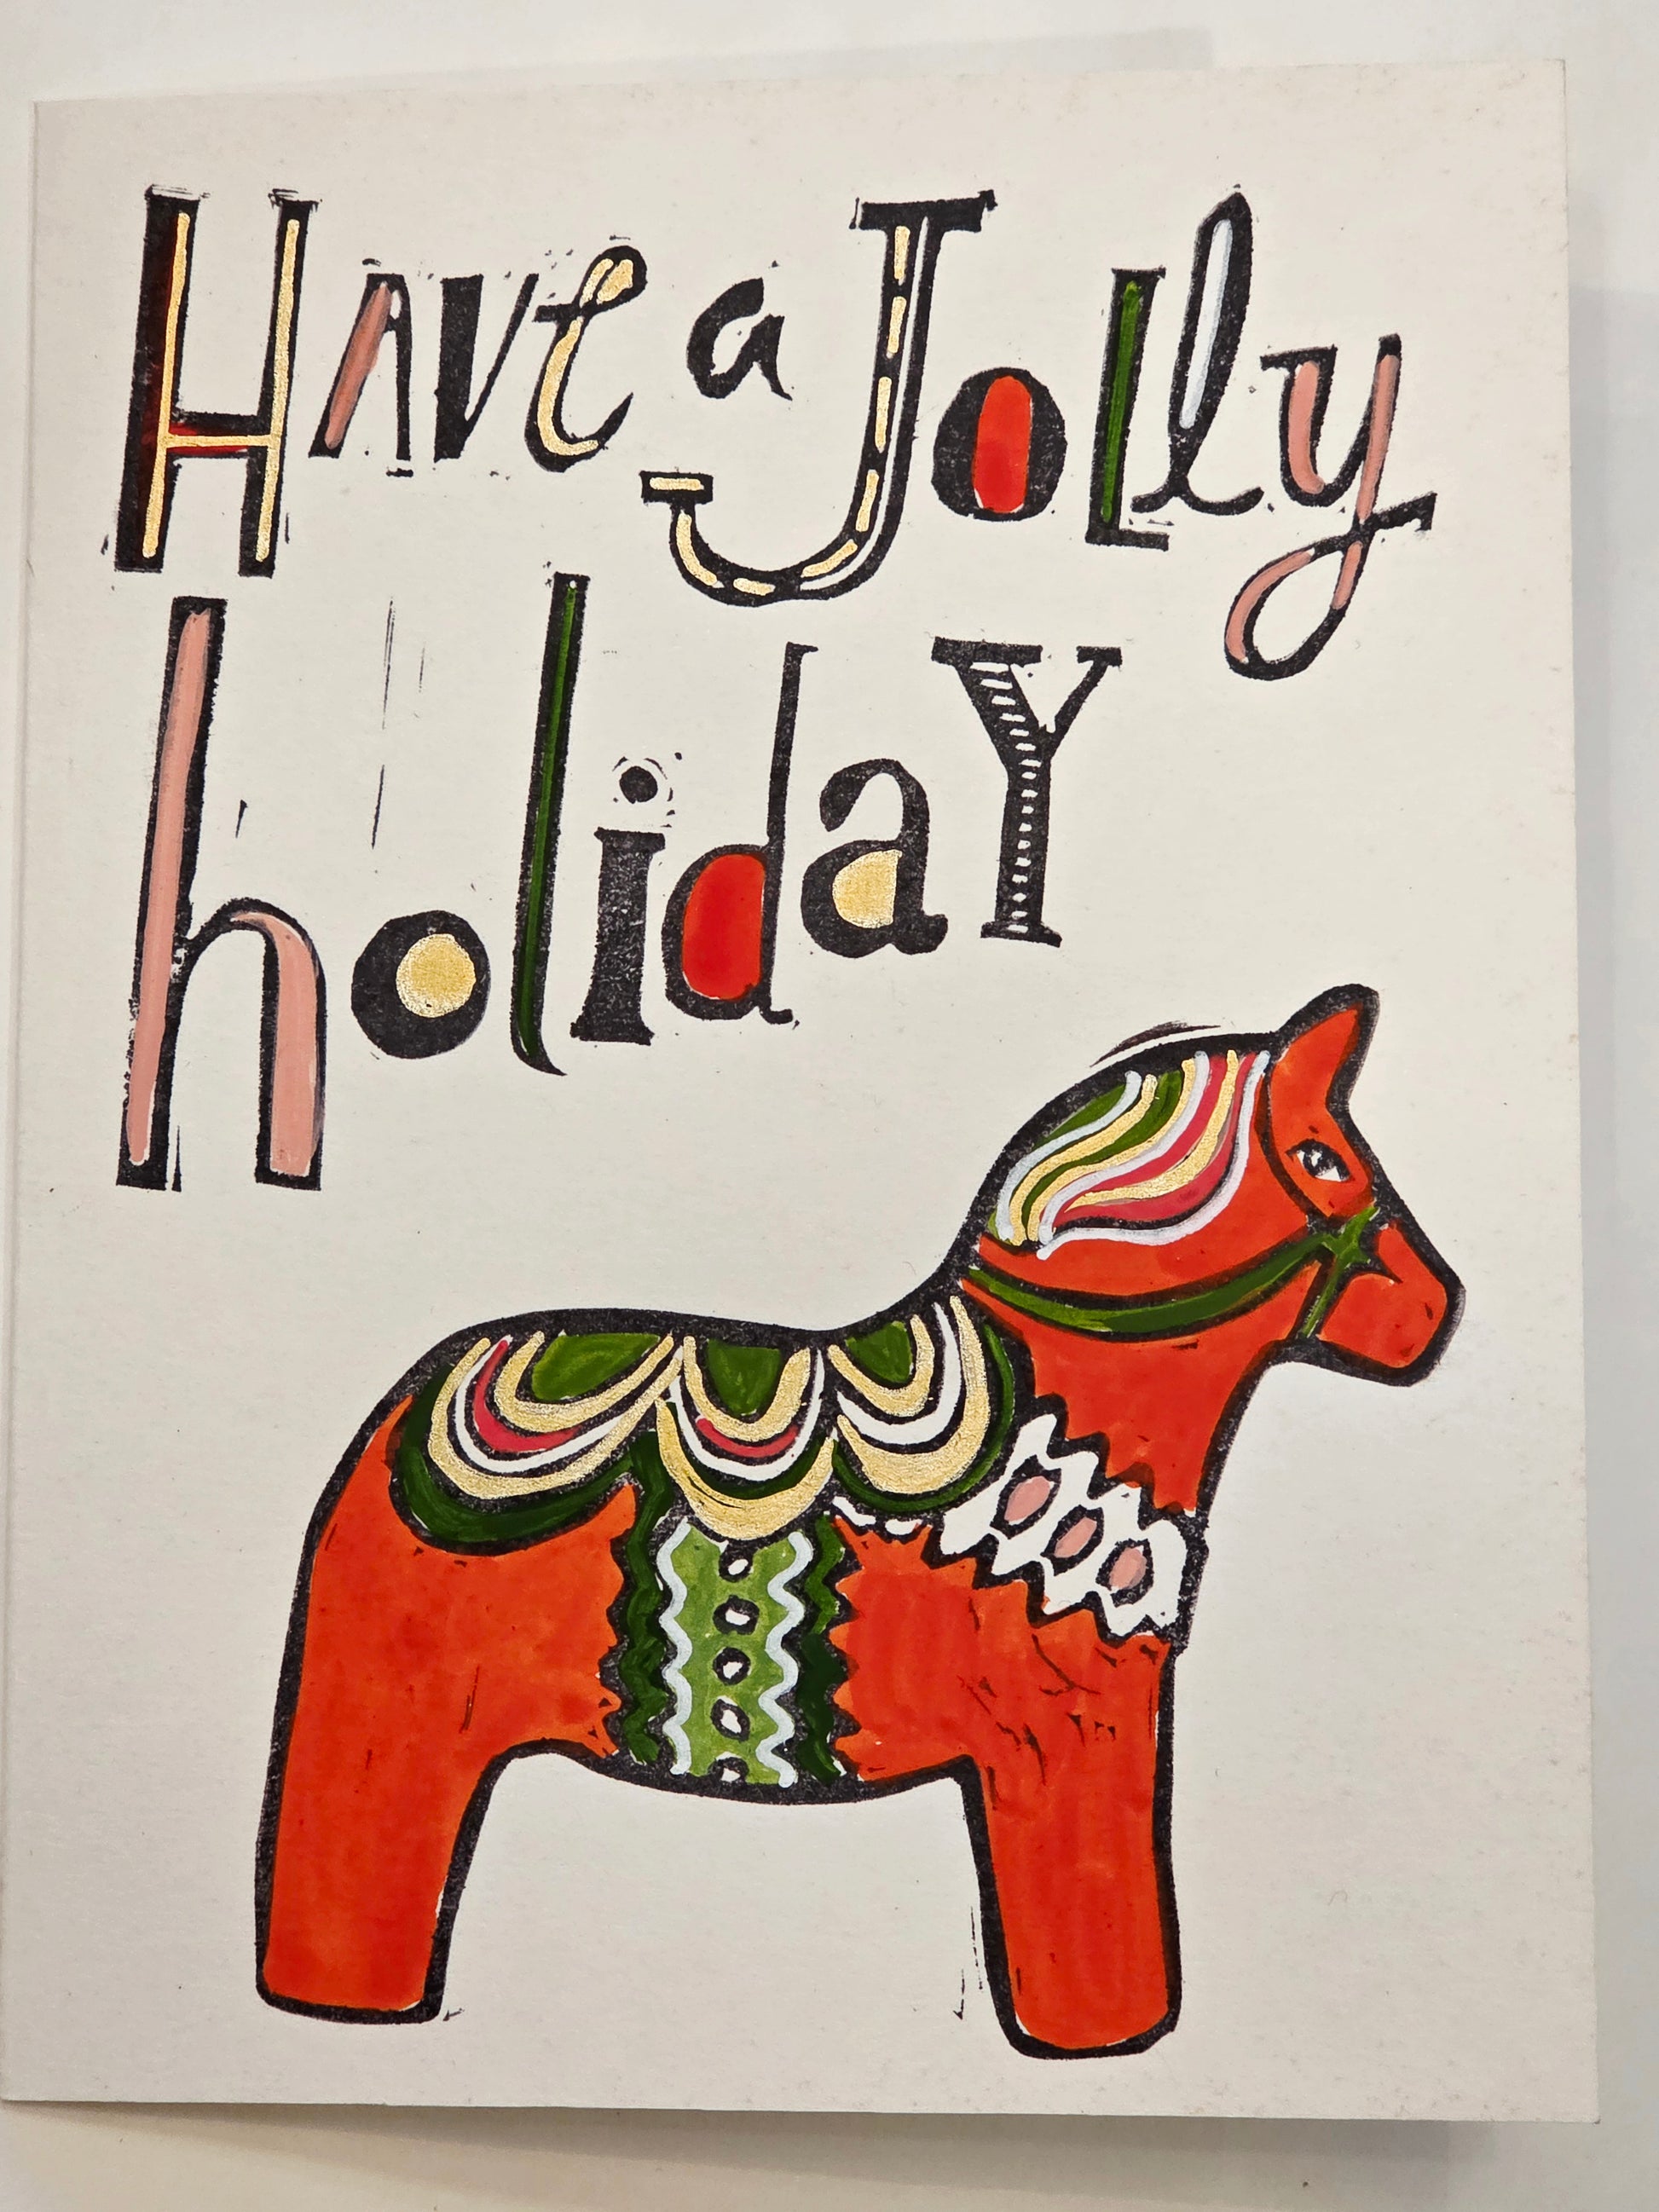 Have a Jolly
holidaY